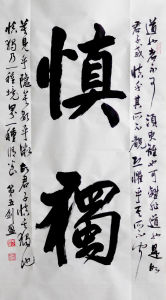 道也者不可須臾離也可離非道也是故
君子戒慎乎其所不睹恐懼乎其所不聞
慎獨
莫見乎隱莫顯乎微故君子慎其獨也
慎獨乃一種境界一種